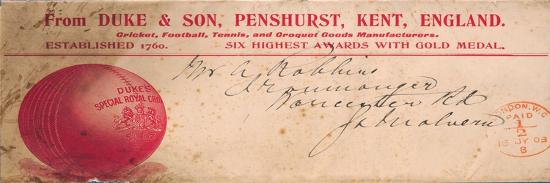 From DUKE & SON, PENSHURST, KENT, ENGLAND.
Cricket, Football, Tennis, and Croquet Goods Manufacturers.
ESTABLISHED 1760. SIX HIGHEST AWARDS WITH GOLD MEDAL.
DUKE'S
SPECIAL ROYAL CRO
Mr A Robbins
Ironmonger
Worcester Rd
Malvern
LONDON, W.C.
PAID
1/2
15 JY 03
8